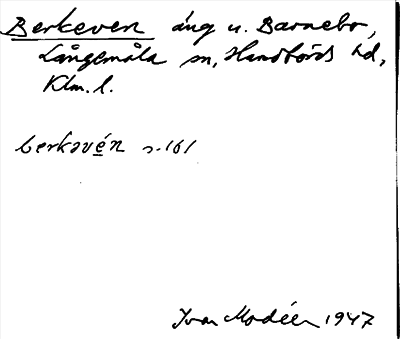 Berkeven äng u. Barnebo,
Långemåla sn, Handbörds hd,
Klm. l.
berkəvén s. 161
Ivar Modéer 1947